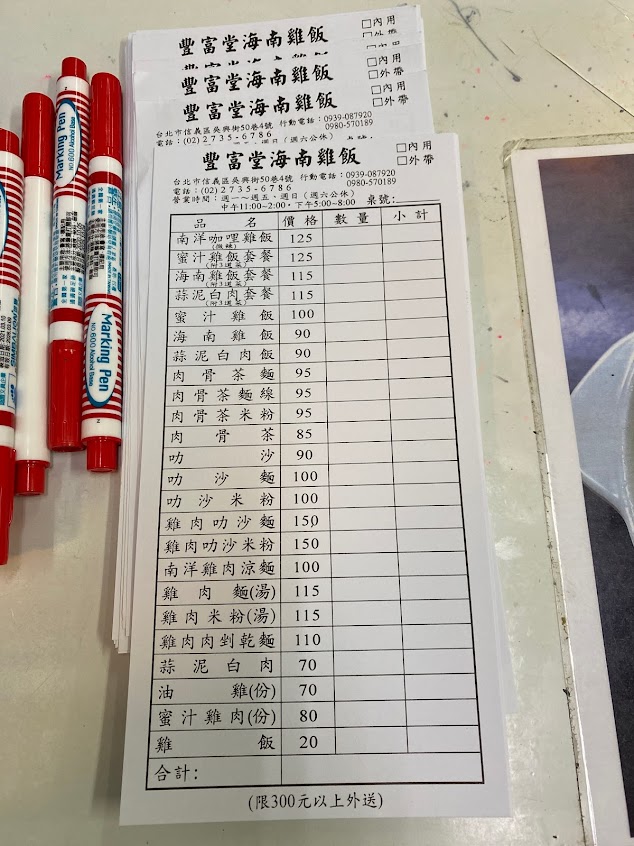 豐富堂海南雞飯
□內用
豐富堂海南雞飯
□內用
□外帶
豐富堂海南雞飯
□內用
□外帶
台北市信義區吳興街50巷4號 行動電話：0939-087920
電話：(02)2735-6786 0980-570189
豐富堂海南雞飯
□內用
□外帶
台北市信義區吳興街50巷4號 行動電話：0939-087920
電話：(02)2735-6786 0980-570189
營業時間：週一～週五、週日（週六公休）
中午11:00~2:00，下午5:00~8:00 桌號:
品名 價格 數量 小計
南洋咖哩雞飯 125
(微辣)
蜜汁雞飯套餐 125
(附3道菜)
海南雞飯套餐 115
(附3道菜)
蒜泥白肉套餐 115
(附3道菜)
蜜汁雞飯 100
海南雞飯 90
蒜泥白肉飯 90
肉骨茶麵 95
肉骨茶麵線 95
肉骨茶米粉 95
肉骨茶 85
叻沙 90
叻沙麵 100
叻沙米粉 100
雞肉叻沙麵 150
雞肉叻沙米粉 150
南洋雞肉涼麵 100
雞肉麵(湯) 115
雞肉米粉(湯) 115
雞肉肉剉乾麵 110
蒜泥白肉 70
油雞(份) 70
蜜汁雞肉(份) 80
雞飯 20
合計:
(限300元以上外送)
Marking Pen
Marking Pen
NO.600 Alcohol Base